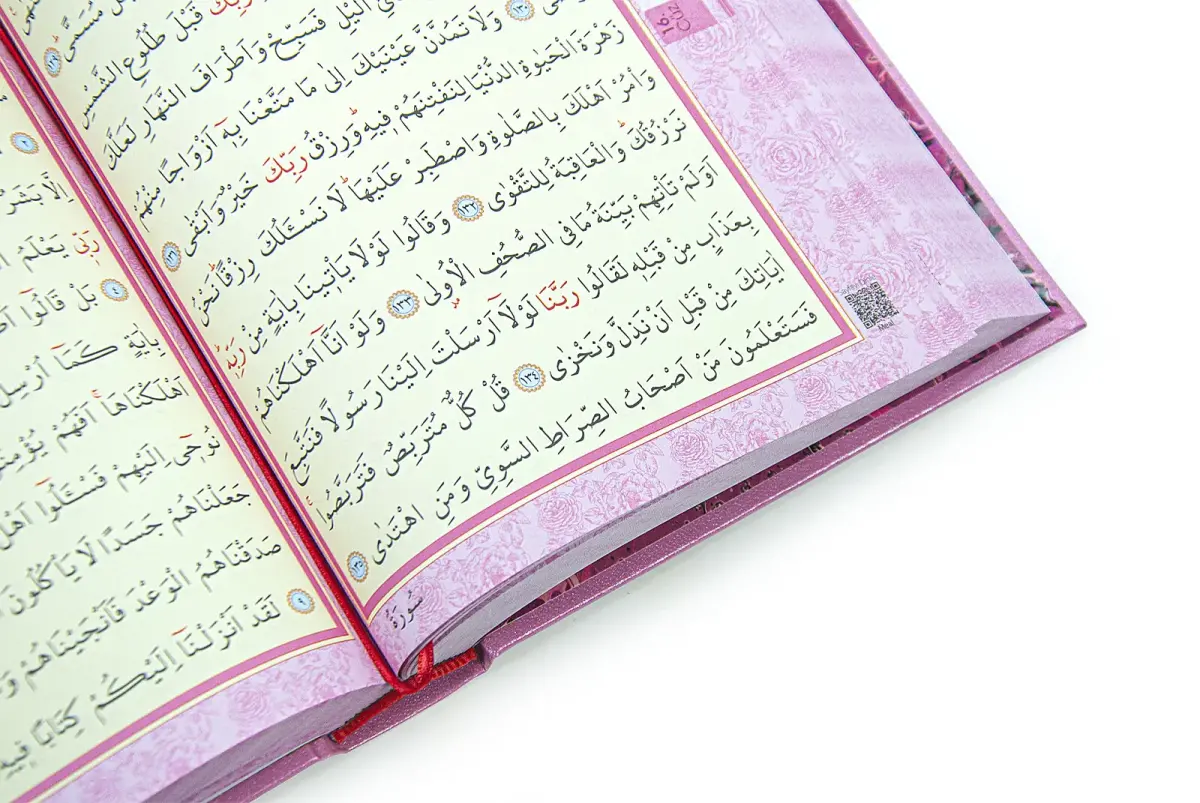 16.
Cüz
مُسَمًّى ﴿١٢٩﴾
رَبِّكَ قَبْلَ طُلُوعِ الشَّمْسِ
الَّيْلِ فَسَبِّحْ وَاَطْرَافَ النَّهَارِ لَعَلَّكَ
﴿١٣٠﴾ وَلَا تَمُدَّنَّ عَيْنَيْكَ اِلٰى مَا مَتَّعْنَا بِه۪ٓ اَزْوَاجًا مِنْهُمْ
زَهْرَةَ الْحَيٰوةِ الدُّنْيَا لِنَفْتِنَهُمْ ف۪يهِۜ وَرِزْقُ رَبِّكَ خَيْرٌ وَاَبْقٰى ﴿١٣١﴾
وَأْمُرْ اَهْلَكَ بِالصَّلٰوةِ وَاصْطَبِرْ عَلَيْهَاۜ لَا نَسْـَٔلُكَ رِزْقًاۜ نَحْنُ
نَرْزُقُكَۜ وَالْعَاقِبَةُ لِلتَّقْوٰى ﴿١٣٢﴾ وَقَالُوا لَوْلَا يَأْت۪ينَا بِاٰيَةٍ مِنْ رَبِّه۪ۜ
اَوَلَمْ تَأْتِهِمْ بَيِّنَةُ مَا فِي الصُّحُفِ الْاُولٰى ﴿١٣٣﴾ وَلَوْ اَنَّٓا اَهْلَكْنَاهُمْ
بِعَذَابٍ مِنْ قَبْلِه۪ لَقَالُوا رَبَّنَا لَوْلَٓا اَرْسَلْتَ اِلَيْنَا رَسُولًا فَنَتَّبِعَ
اٰيَاتِكَ مِنْ قَبْلِ اَنْ نَذِلَّ وَنَخْزٰى ﴿١٣٤﴾ قُلْ كُلٌّ مُتَرَبِّصٌ فَتَرَبَّصُواۚ
فَسَتَعْلَمُونَ مَنْ اَصْحَابُ الصِّرَاطِ السَّوِيِّ وَمَنِ اهْتَدٰى ﴿١٣٥﴾
سُورَةُ
Meal
﴿٢﴾
اِلَّا بَشَرٌ
رَبّ۪ي يَعْلَمُ
﴿٤﴾ بَلْ قَالُٓوا
بِاٰيَةٍ كَمَٓا اُرْسِلَ
اَهْلَكْنَاهَاۚ اَفَهُمْ يُؤْمِنُونَ
نُوح۪ٓي اِلَيْهِمْ فَسْـَٔلُٓوا اَهْلَ
جَعَلْنَاهُمْ جَسَدًا لَا يَأْكُلُونَ
صَدَقْنَاهُمُ الْوَعْدَ فَاَنْجَيْنَاهُمْ وَ
﴿٩﴾ لَقَدْ اَنْزَلْنَٓا اِلَيْكُمْ كِتَابًا ف۪يهِ